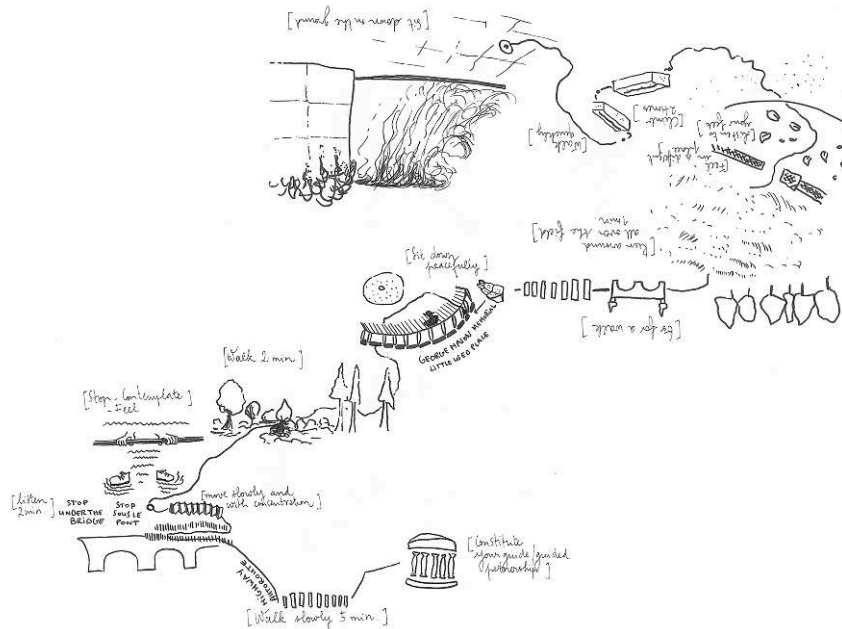 [Sit down on the ground]
[Walk
quickly]
[Climb
2 times]
[Listen to
your feet]
[Feel
in a different
place]
[Run around
all over the field]
1 min
[Go for a walk]
[Sit down
peacefully]
GEORGE MASON MEMORIAL
LITTLE USED PLACE
[Walk 2 min]
[Stop - Contemplate]
- Feel
[listen
2 min]
STOP
UNDER THE
BRIDGE
STOP
SOUS LE
PONT
[move slowly and
with concentration]
HIGHWAY
AUTOROUTE
[Walk slowly 5 min]
[Constitute
your guide/guided
partnership]